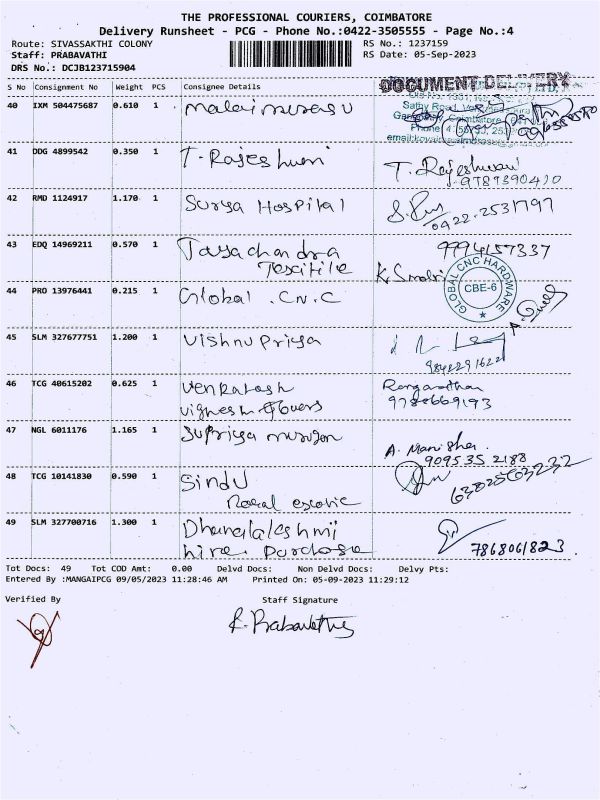 THE PROFESSIONAL COURIERS, COIMBATORE
Delivery Runsheet - PCG - Phone No.:0422-3505555 - Page No.:4
Route: SIVASSAKTHI COLONY
RS No.: 1237159
Staff: PRABAVATHI
RS Date: 05-Sep-2023
DRS No.: DCJB123715904
S No Consignment No Weight PCS Consignee Details
DOCUMENT DELIVERY
40 IXM 504475687 0.610 1 malaimurasu
Sathy Road
Coimbatore
Phone
41 DDG 4899542 0.350 1 T. Rajeshwari T. Rajeshwari
9787390410
42 RMD 1124917 1.170 1 Surya Hospital
0422.2531797
43 EDQ 14969211 0.570 1 Jayachandra 9994157337
Textile
44 PRO 13976441 0.215 1 Global .C.N.C
GLOBAL CNC HARDWARE
CBE-6
45 SLM 327677751 1.200 1 Vishnu Priya
9842291622
46 TCG 40615202 0.625 1 Venkatesh Ranganathan
Vignesh Flovers 9788669193
47 NGL 6011176 1.165 1 Supriya murugan A. Manisha.
9095 35 2188
48 TCG 10141830 0.590 1 Sindu 6382563232
49 SLM 327700716 1.300 1 Dhanalakshmi
hire. Purchase 7868061823.
Tot Docs: 49 Tot COD Amt: 0.00 Delvd Docs: Non Delvd Docs: Delvy Pts:
Entered By :MANGAIPCG 09/05/2023 11:28:46 AM Printed On: 05-09-2023 11:29:12
Verified By Staff Signature
R. Prabavathy